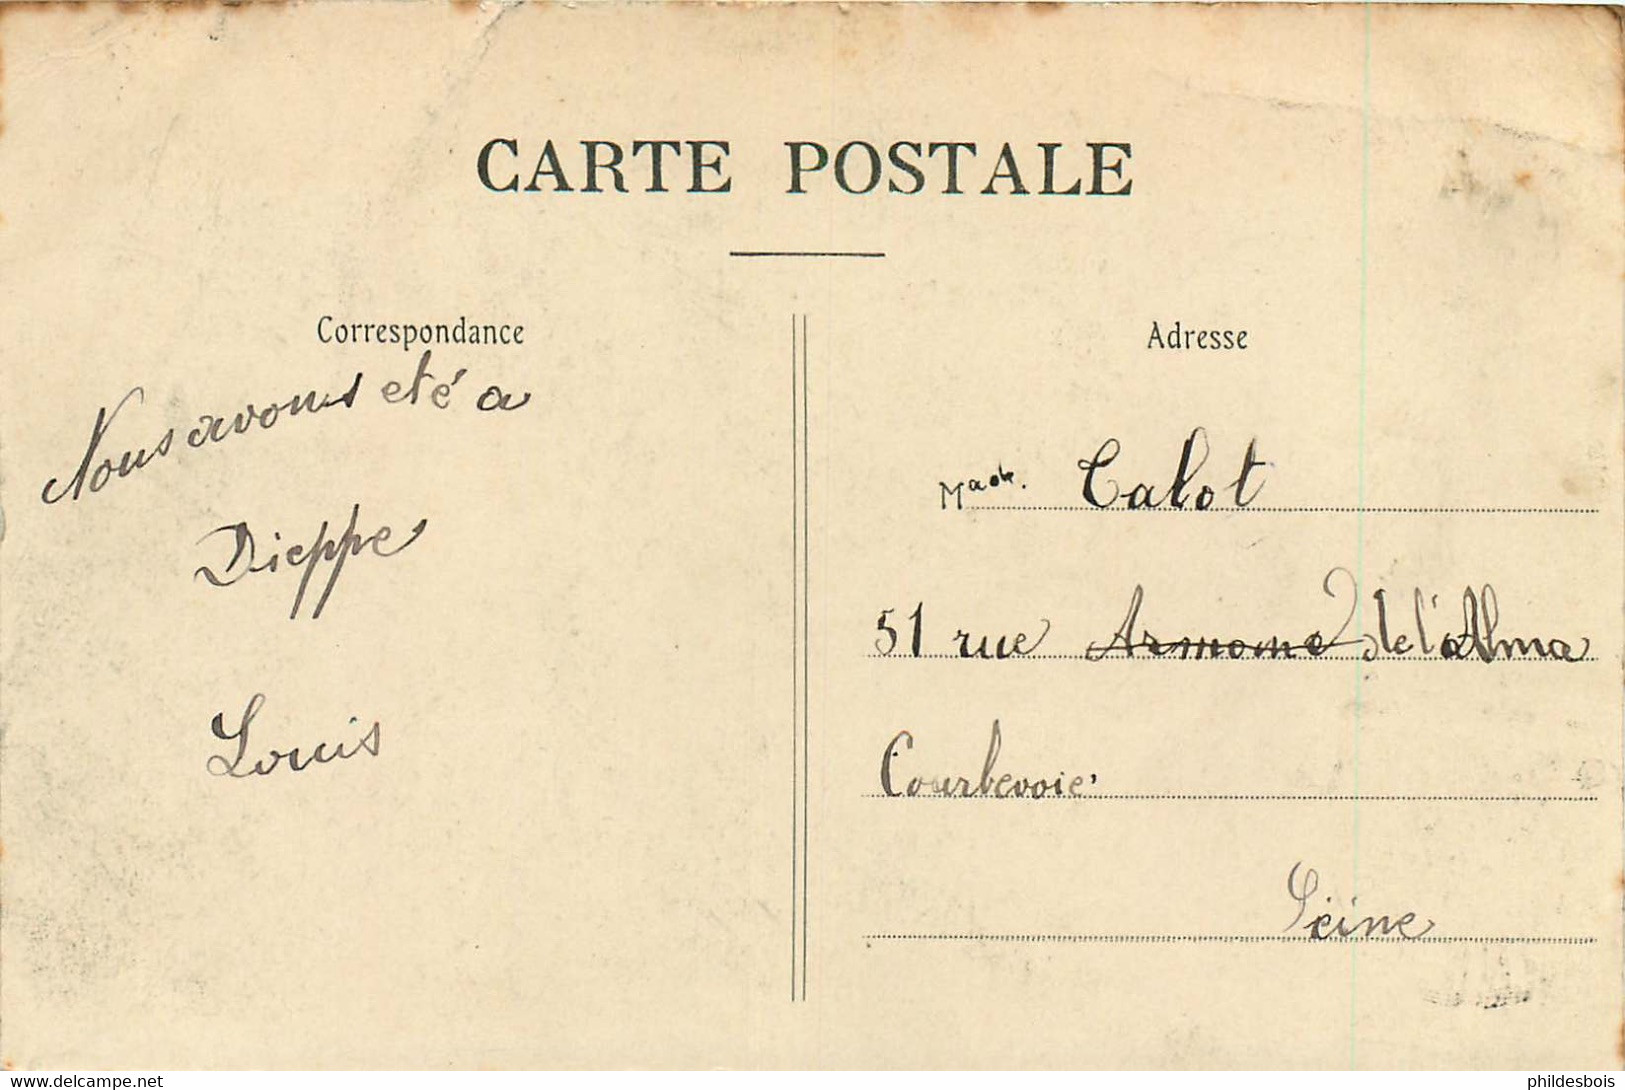 CARTE POSTALE
Correspondance
Nous avons eté a
Dieppe
Louis
Adresse
Made. Calot
51 rue de l'Alma
Courbevoie
Seine
www.delcampe.net
phildesbois